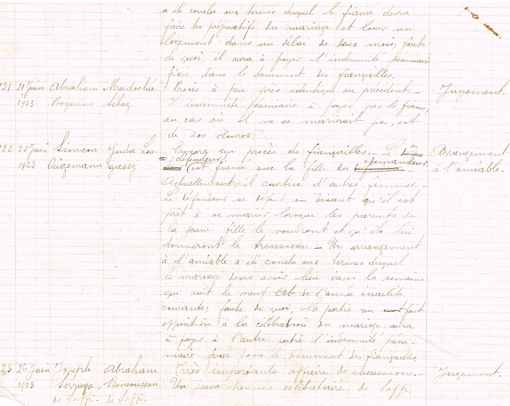 a été conclu aux termes duquel le fiancé devra
faire les préparatifs du mariage et louer un
logement dans un délai de deux mois, faute
de quoi, il aura à payer l'indemnité pécuniaire
fixée dans le document des fiançailles.
121 21 Juin Abraham Mardochée Procès à peu près identique au précédent. - Jugement.
1923 Sebag L'indemnité pécuniaire à payer par le fiancé,
au cas où il ne se marierait pas, est
de 200 douros.
122 25 Juin Simeon Juda Encore un procès de fiançailles. - Arrangement
1923 défendeur est fiancé avec la fille du demandeur à l'amiable.
Actuellement il courtise d'autres femmes.
Le défendeur se défend en disant qu'il est
prêt à se marier lorsque les parents de
la jeune fille le voudront et qu'ils lui
donneront le trousseau. - Un arrangement
à l'amiable a été conclu aux termes duquel
le mariage devra avoir lieu dans la semaine
qui suit le neuf Ab de l'année israélite
courante; faute de quoi, la partie qui fait
opposition à la célébration du mariage aura
à payer à l'autre partie l'indemnité pécu-
niaire fixée dans le document des fiançailles.
23 26 Juin Joseph Abraham Très importante affaire de succession. - Jugement.
1923 Bensoussan Un jeune homme célibataire, de Saffi,
de Saffi. de Saffi.